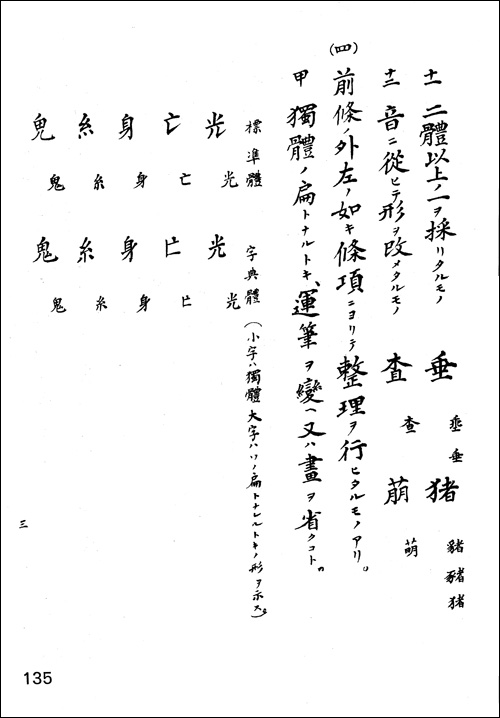 十二 二體以上ノ一ヲ採リタルモノ 垂 埀 垂 猪 豬 豬 猪
十三 音ニ從ヒテ形ヲ改メタルモノ 査 查 萠 萌
(四) 前條ノ外左ノ如キ條項ニヨリテ整理ヲ行ヒタルモノアリ。
甲 獨體ノ扁トナルトキ、運筆ヲ變ヘ又ハ畫ヲ省クコト。
標準體 字典體 (小字ハ獨體 大字ハソノ扁トナレルトキノ形ヲ示ス。)
光 光 光 光
亡 亡 亡 亡
身 身 身 身
糸 糸 糸 糸
鬼 鬼 鬼 鬼
三
135